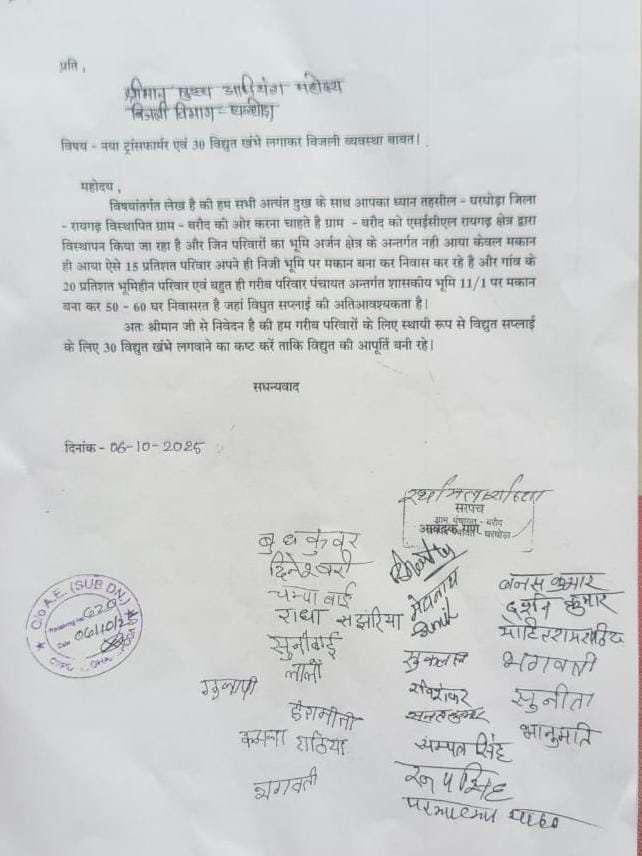 प्रति ,
श्रीमान मुख्य अभियंता महोदय
बिजली विभाग - घरघोड़ा
विषय - नया ट्रांसफार्मर एवं 30 विद्युत खंभे लगाकर बिजली व्यवस्था बावत।
महोदय ,
विषयांतर्गत लेख है की हम सभी अत्यंत दुख के साथ आपका ध्यान तहसील - घरघोड़ा जिला
- रायगढ़ विस्थापित ग्राम - बरौद की ओर करना चाहते है ग्राम - बरौद को एसईसीएल रायगढ़ क्षेत्र द्वारा
विस्थापन किया जा रहा है और जिन परिवारों का भूमि अर्जन क्षेत्र के अन्तर्गत नही आया केवल मकान
ही आया ऐसे 15 प्रतिशत परिवार अपने ही निजी भूमि पर मकान बना कर निवास कर रहे है और गांव के
20 प्रतिशत भूमिहीन परिवार एवं बहुत ही गरीब परिवार पंचायत अन्तर्गत शासकीय भूमि 11/1 पर मकान
बना कर 50 - 60 घर निवासरत है जहां विधुत सप्लाई की अतिआवश्यकता है।
अतः श्रीमान जी से निवेदन है की हम गरीब परिवारों के लिए स्थायी रूप से विद्युत सप्लाई
के लिए 30 विद्युत खंभे लगवाने का कष्ट करें ताकि विद्युत की आपूर्ति बनी रहे।
सधन्यवाद
दिनांक - 06-10-2025
सरपंच
ग्राम पंचायत - बरौद
आवेदक गण
घरघोड़ा
बुधकुंवर
दिनेश्वरी
चम्पा बाई
राधा मझरिया
सुनीबाई
लाली
गुलापी
कमला राठिया
भगवती
मेघनाथ
Sunil
सुकलाल
रविशंकर
चम्पत सिंह
रूपसिंह
परमात्मा
बनस कुमार
दर्शन कुमार
भगवती
सुनीता
भानुमति
O/o A.E. (SUB DN.)
620
Date 06/10/2